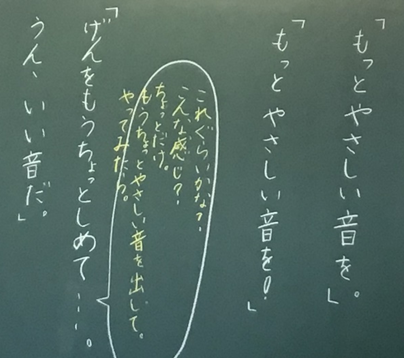 「もっとやさしい音を。」
「もっとやさしい音を！」
これぐらいかな？
こんな感じ？
ちょっとだけ。
もうちょっとやさしい音を出して。
やってみたら。
「げんをもうちょっとしめて…。
うん、いい音だ。」